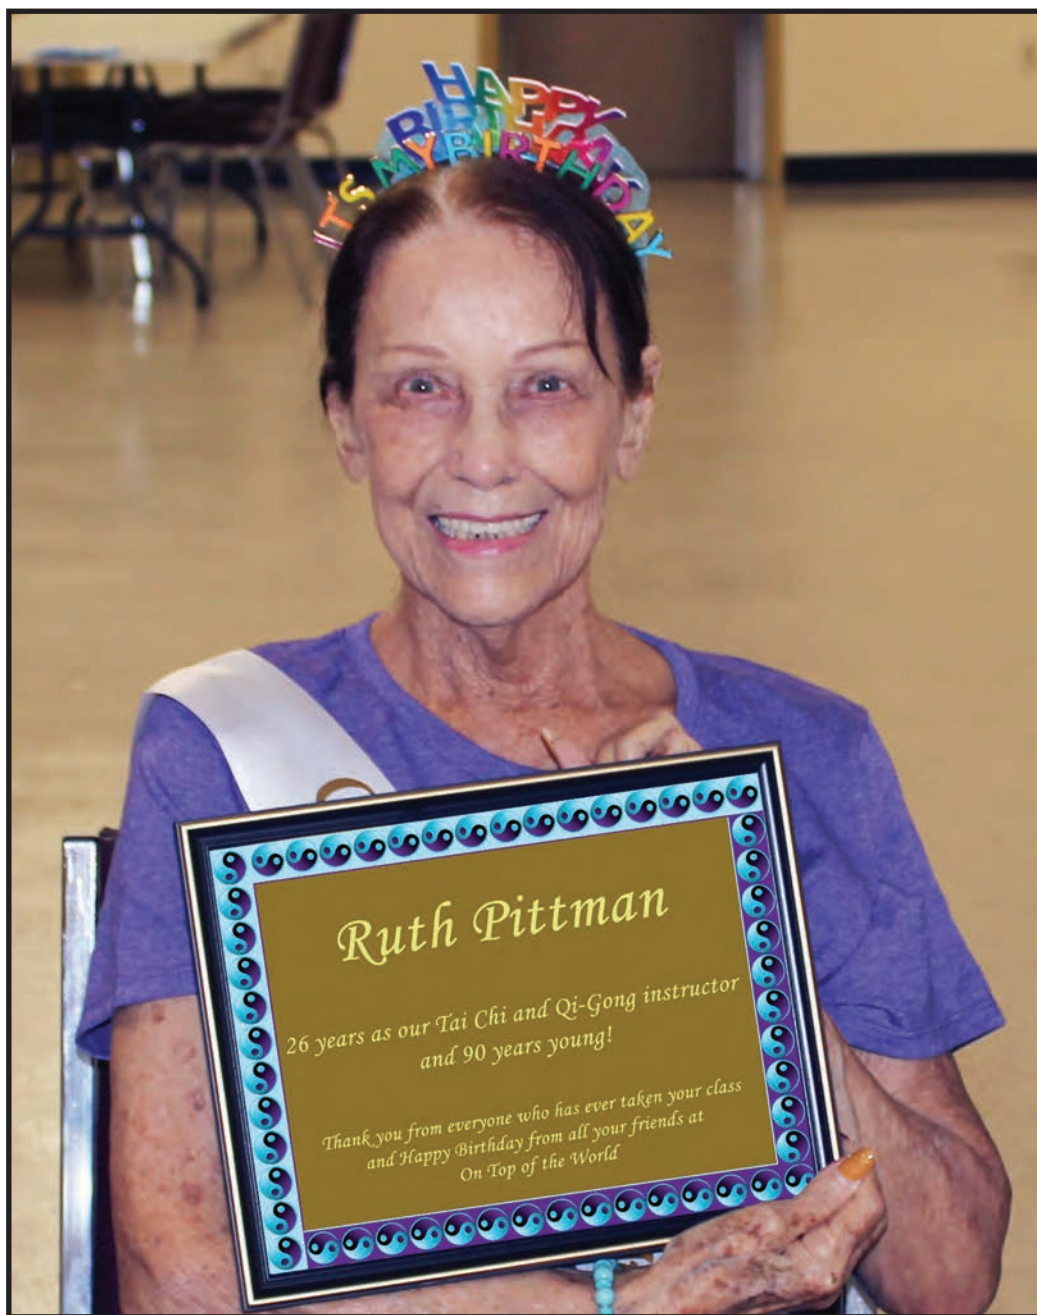 HAPPY
BIRTHDAY
IT'S MY BIRTHDAY
Ruth Pittman
26 years as our Tai Chi and Qi-Gong instructor
and 90 years young!
Thank you from everyone who has ever taken your class
and Happy Birthday from all your friends at
On Top of the World